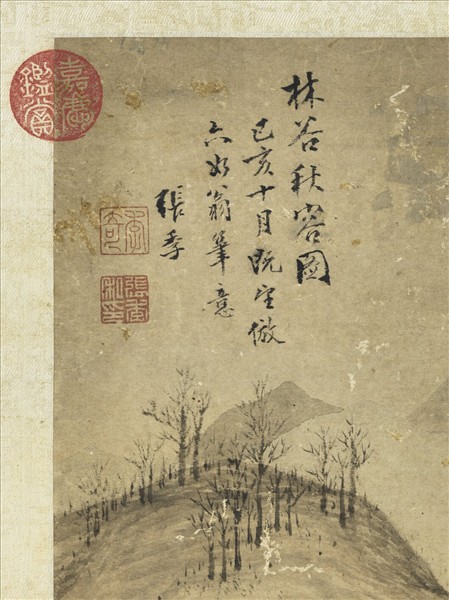 林谷秋容圖
己亥十月既望倣
六如翁筆意
張季
張季私印
嘉慶
鑑賞